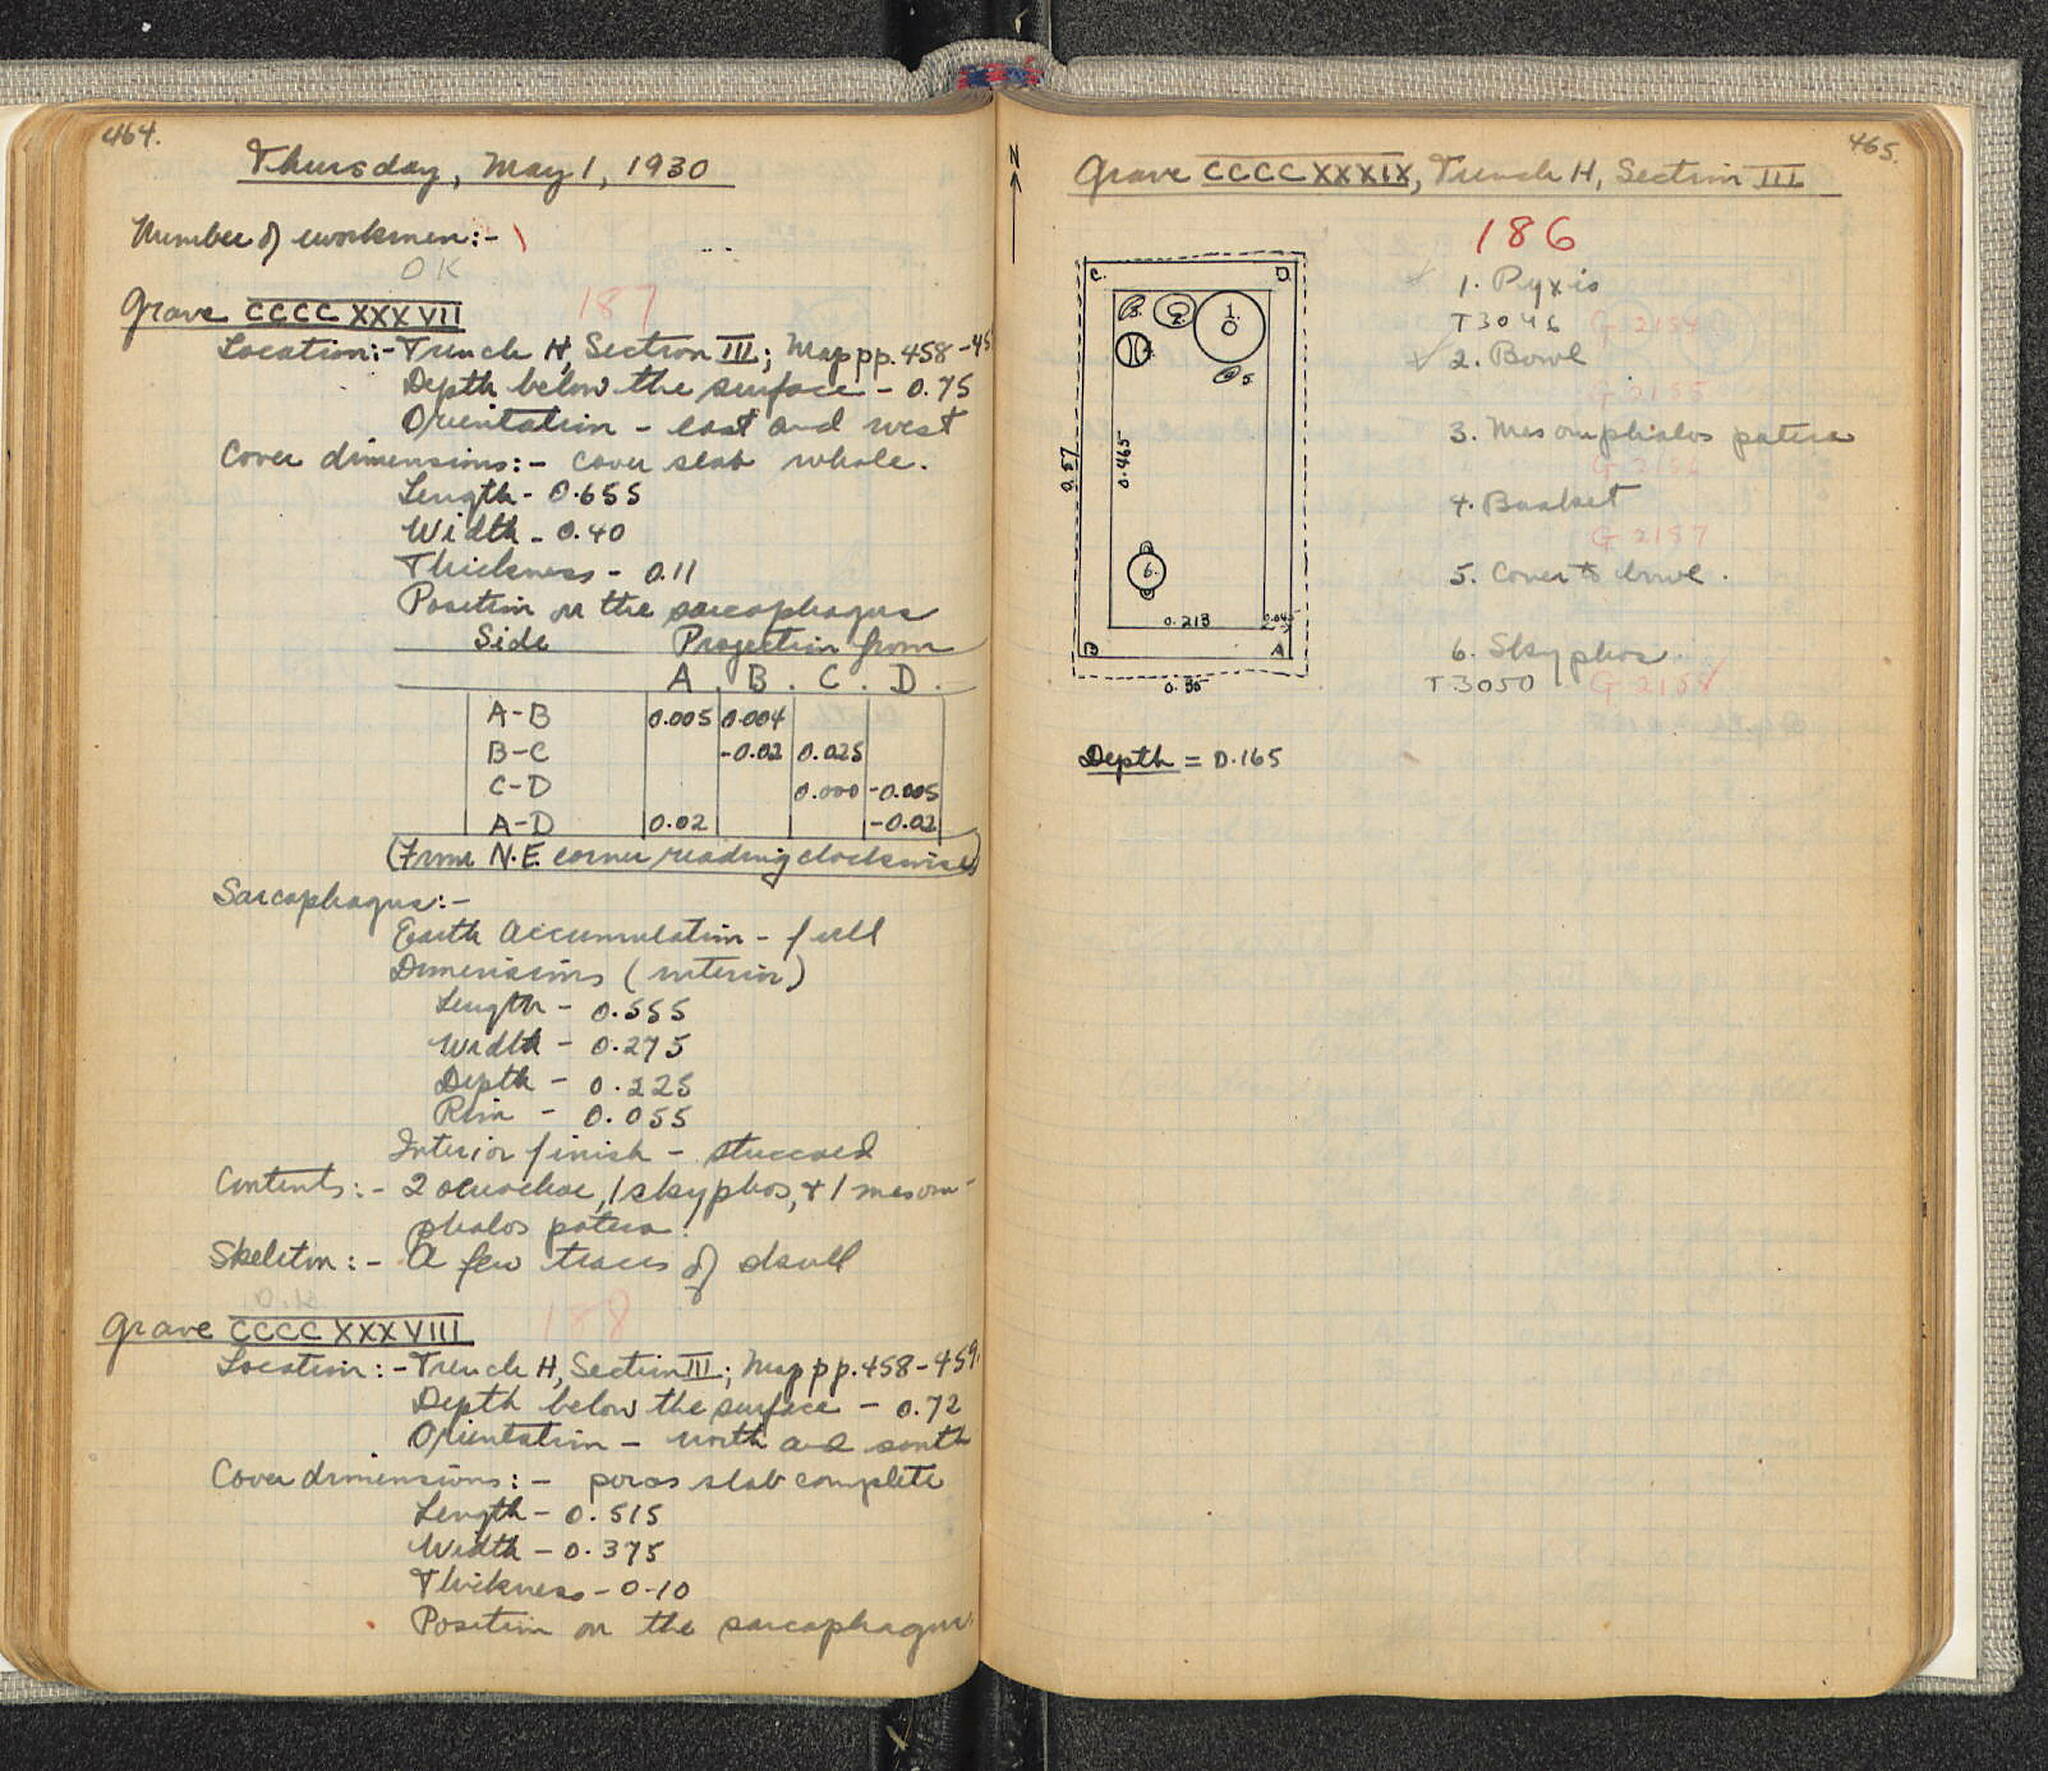 464.
Thursday, May 1, 1930
Number of workmen:-
OK
Grave CCCCXXXVII
187
Location:- Trench H, Section III; Map pp. 458-45
Depth below the surface - 0.75
Orientation - east and west
Cover dimensions:- cover slab whole.
Length - 0.655
Width - 0.40
Thickness - 0.11
Position on the sarcophagus
Side Projection from
A. B. C. D.
A-B 0.005 0.004
B-C -0.02 0.025
C-D 0.000 -0.005
A-D 0.02 -0.02
(From N.E. corner reading clockwise)
Sarcophagus:-
Earth Accumulation - full
Dimensions (interior)
Length - 0.555
Width - 0.275
Depth - 0.225
Rim - 0.055
Interior finish - stuccoed
Contents:- 2 oenochoe, 1 skyphos, + 1 mesom-
phalos patera.
Skeleton:- A few traces of skull
O.K.
Grave CCCCXXXVIII
188
Location:- Trench H, Section III; Map pp. 458-459.
Depth below the surface - 0.72
Orientation - north and south
Cover dimensions:- poros slab complete
Length - 0.515
Width - 0.375
Thickness - 0.10
Position on the sarcophagus.
465.
N
Grave CCCCXXXIX, Trench H, Section III
186
C. D.
3. 2. 1.
4.
5.
0.57
0.465
6.
0.213 0.045
B A
0.35
Depth = 0.165
1. Pyxis
T3046 G 2154
2. Bowl
G 2155
3. Mesomphalos patera
G 2156
4. Basket
G 2157
5. Cover to bowl.
6. Skyphos.
T3050 G 2158